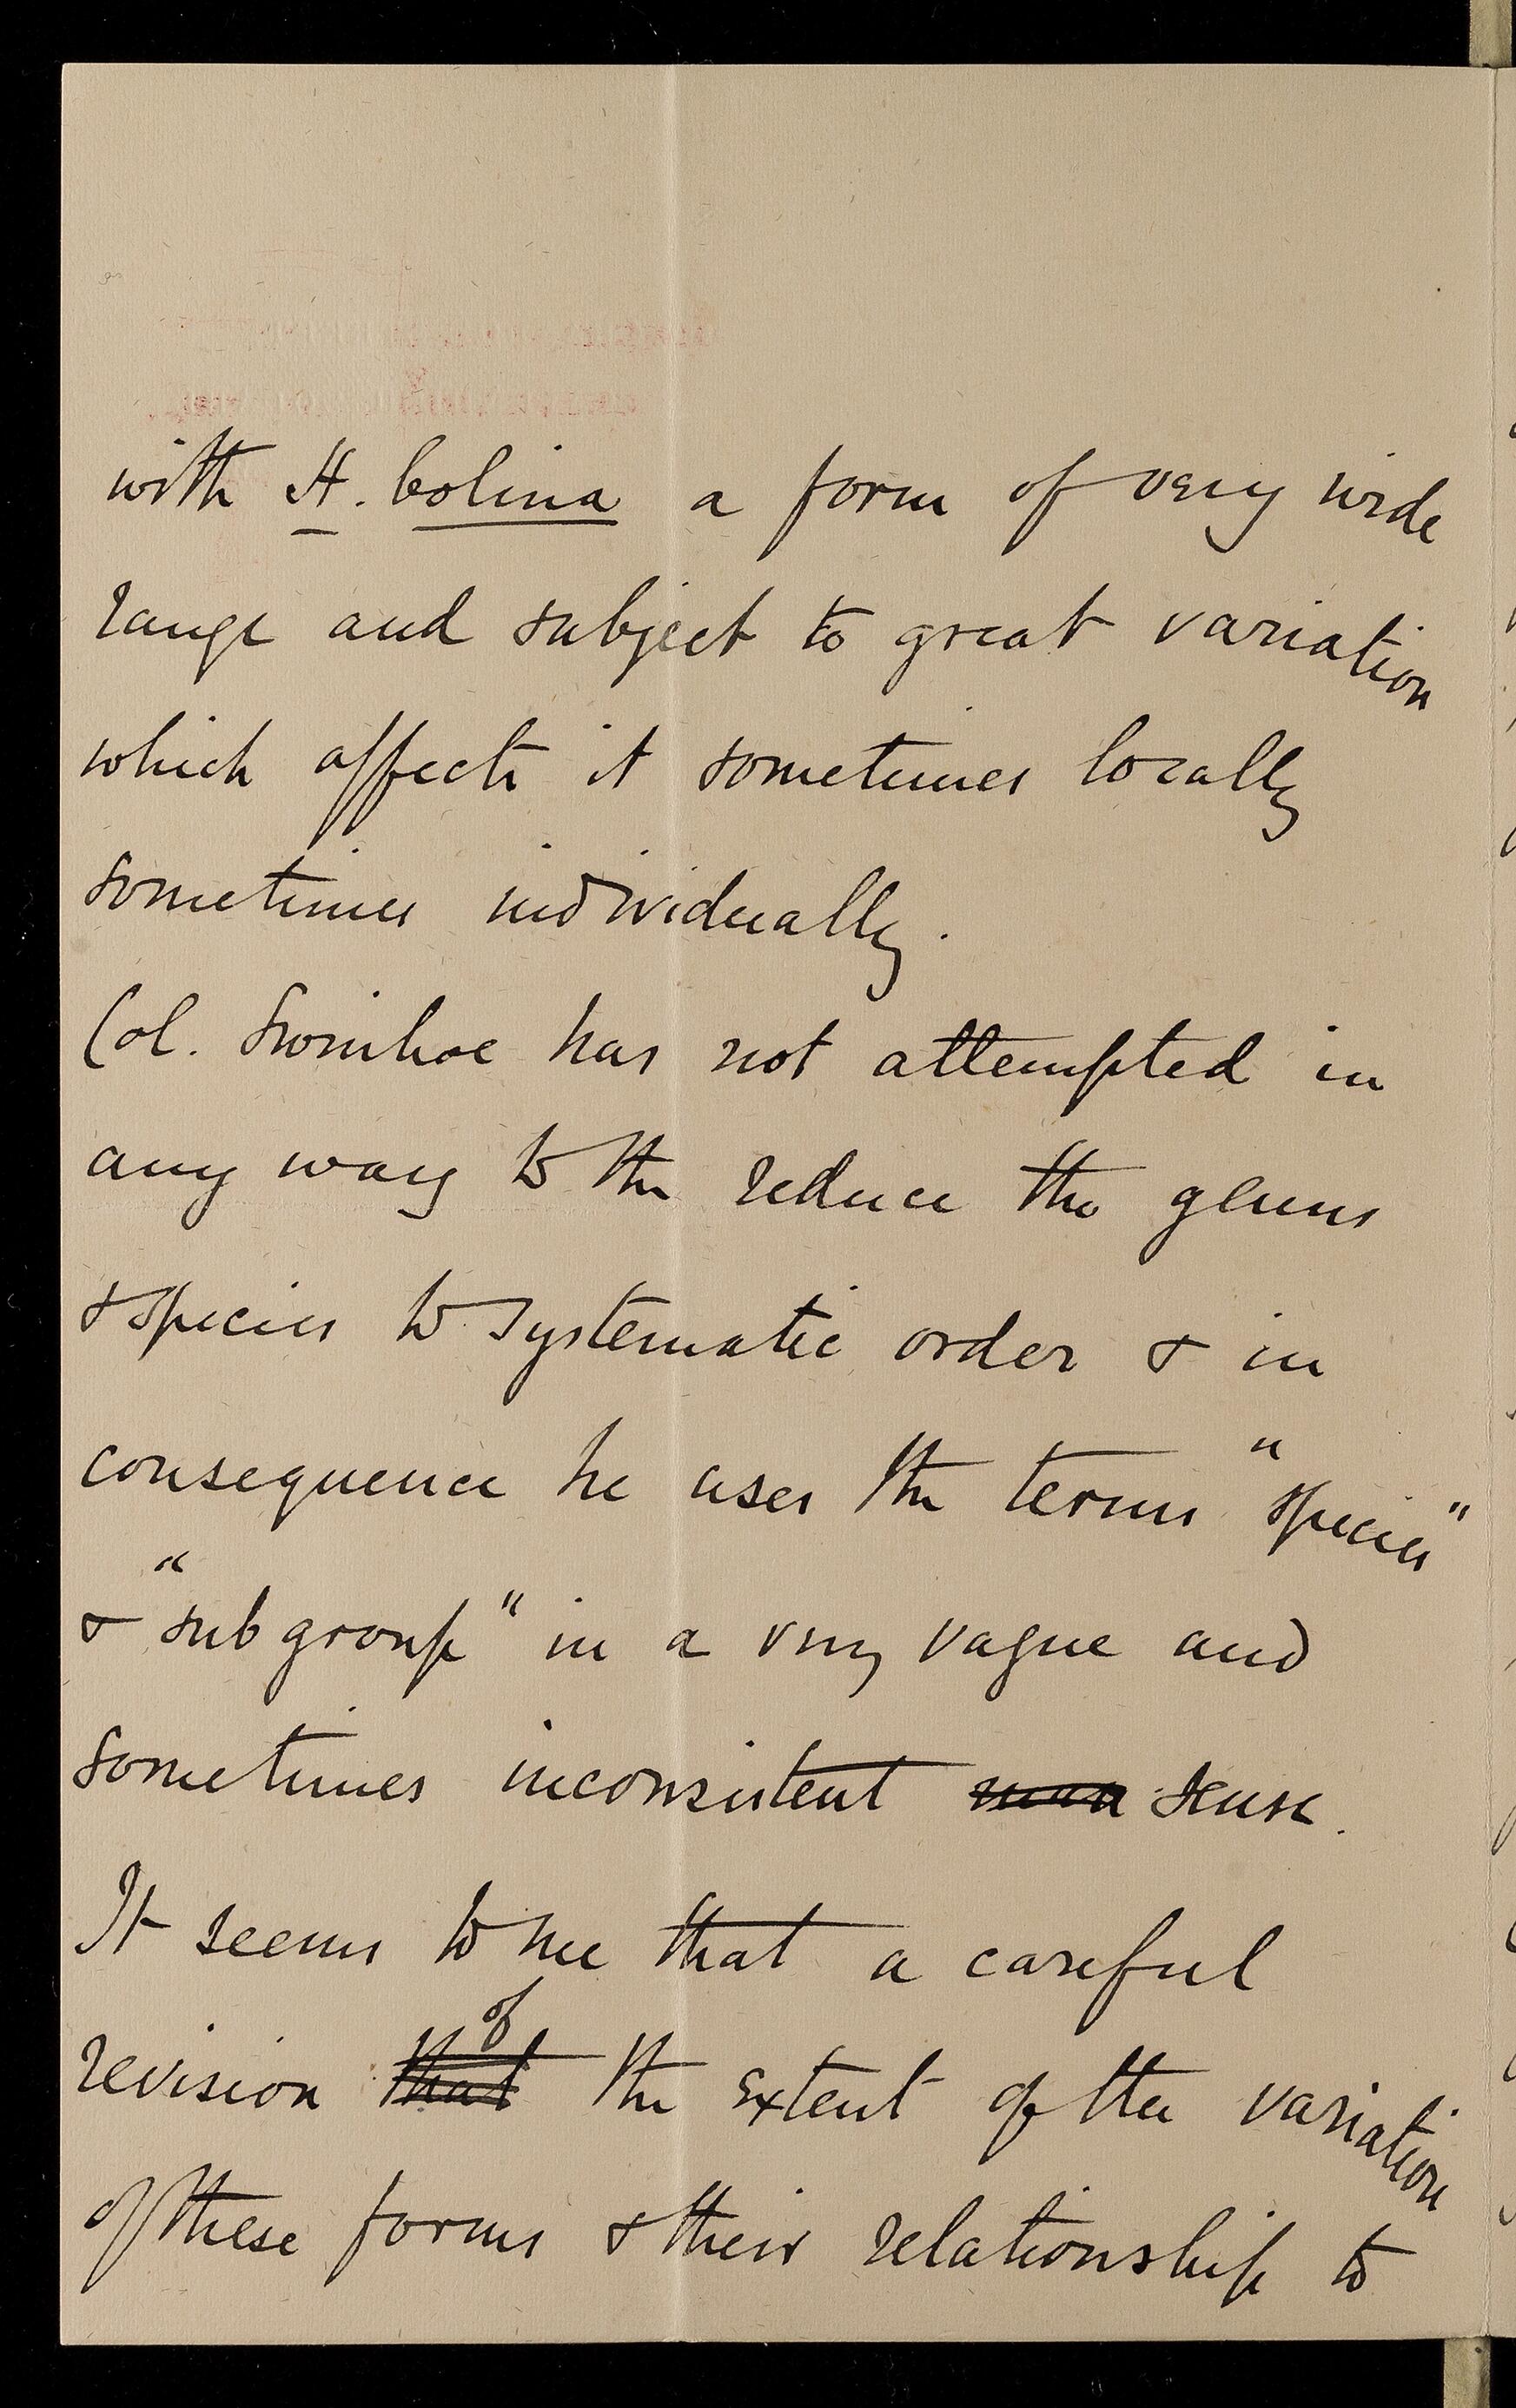 with H. bolina a form of very wide
range and subject to great variation
which affects it sometimes locally
sometimes individually.
Col. Swinhoe has not attempted in
any way to the reduce the genus
& species to systematic order & in
consequence he uses the terms "species"
& "sub group" in a very vague and
sometimes inconsistent sense.
It seems to me that a careful
revision that of the extent of the variation
of these forms & their relationship to